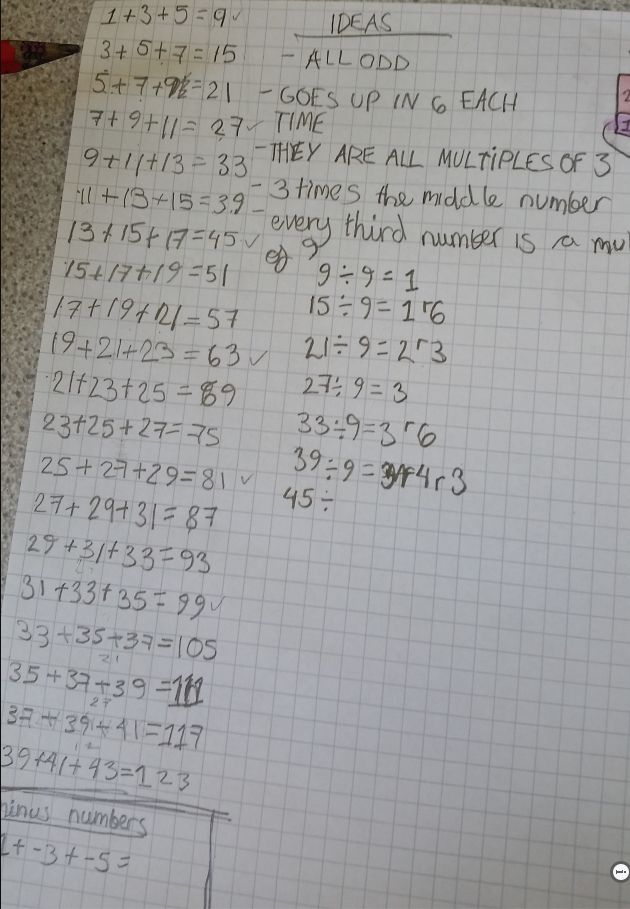 1+3+5=9✓
3+5+7=15
5+7+9=21
7+9+11=27✓
9+11+13=33
11+13+15=39
13+15+17=45✓
15+17+19=51
17+19+21=57
19+21+23=63✓
21+23+25=69
23+25+27=75
25+27+29=81✓
27+29+31=87
29+31+33=93
31+33+35=99✓
33+35+37=105
35+37+39=111
37+39+41=117
39+41+43=123
minus numbers
1+-3+-5=
IDEAS
- ALL ODD
- GOES UP IN 6 EACH
TIME
- THEY ARE ALL MULTIPLES OF 3
- 3 times the middle number
- every third number is a mu
of 9
9÷9=1
15÷9=1r6
21÷9=2r3
27÷9=3
33÷9=3r6
39÷9=4r3
45÷